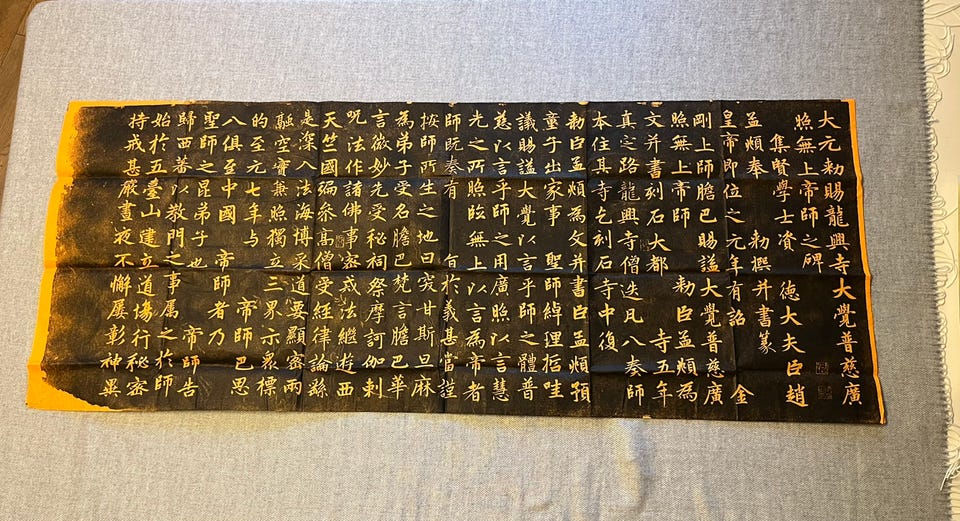 大元勅賜龍興寺大覺普慈廣
照無上帝師之碑
集賢學士資德大夫臣趙
孟頫奉 勅撰并書篆
皇帝即位之元年有詔 金
剛上師膽巴賜謚大覺普慈廣
照無上帝師 勅臣孟頫為
文并書刻石大都 寺五年
真定路龍興寺僧迭凡八奏師
本住其寺乞刻石寺中復
勅臣孟頫為文并書臣孟頫預
童子出家事 聖師綽理哲哇
議賜謚大覺以言乎師之體普
慈以言乎師之用廣照以言慧
光之所照臨無上以言為帝者
師既奏有 旨於義甚當謹
按師所生之地曰突甘斯旦麻
為弟子受名膽巴梵言膽巴華
言微妙先受秘祠祭摩訶伽剌
呪法作諸佛事密戒法繼游西
天竺國徧參高僧受經律論繇
是深入法海博采道要顯密兩
融空實兼照獨立三界示衆標
的至元七年與 帝師巴思
八俱至中國 帝師者乃
聖師之昆弟子也 帝師告
歸西蕃以敎門之事属之於師
始於五臺山建立道場行秘密
持戒甚嚴晝夜不懈屢彰神異